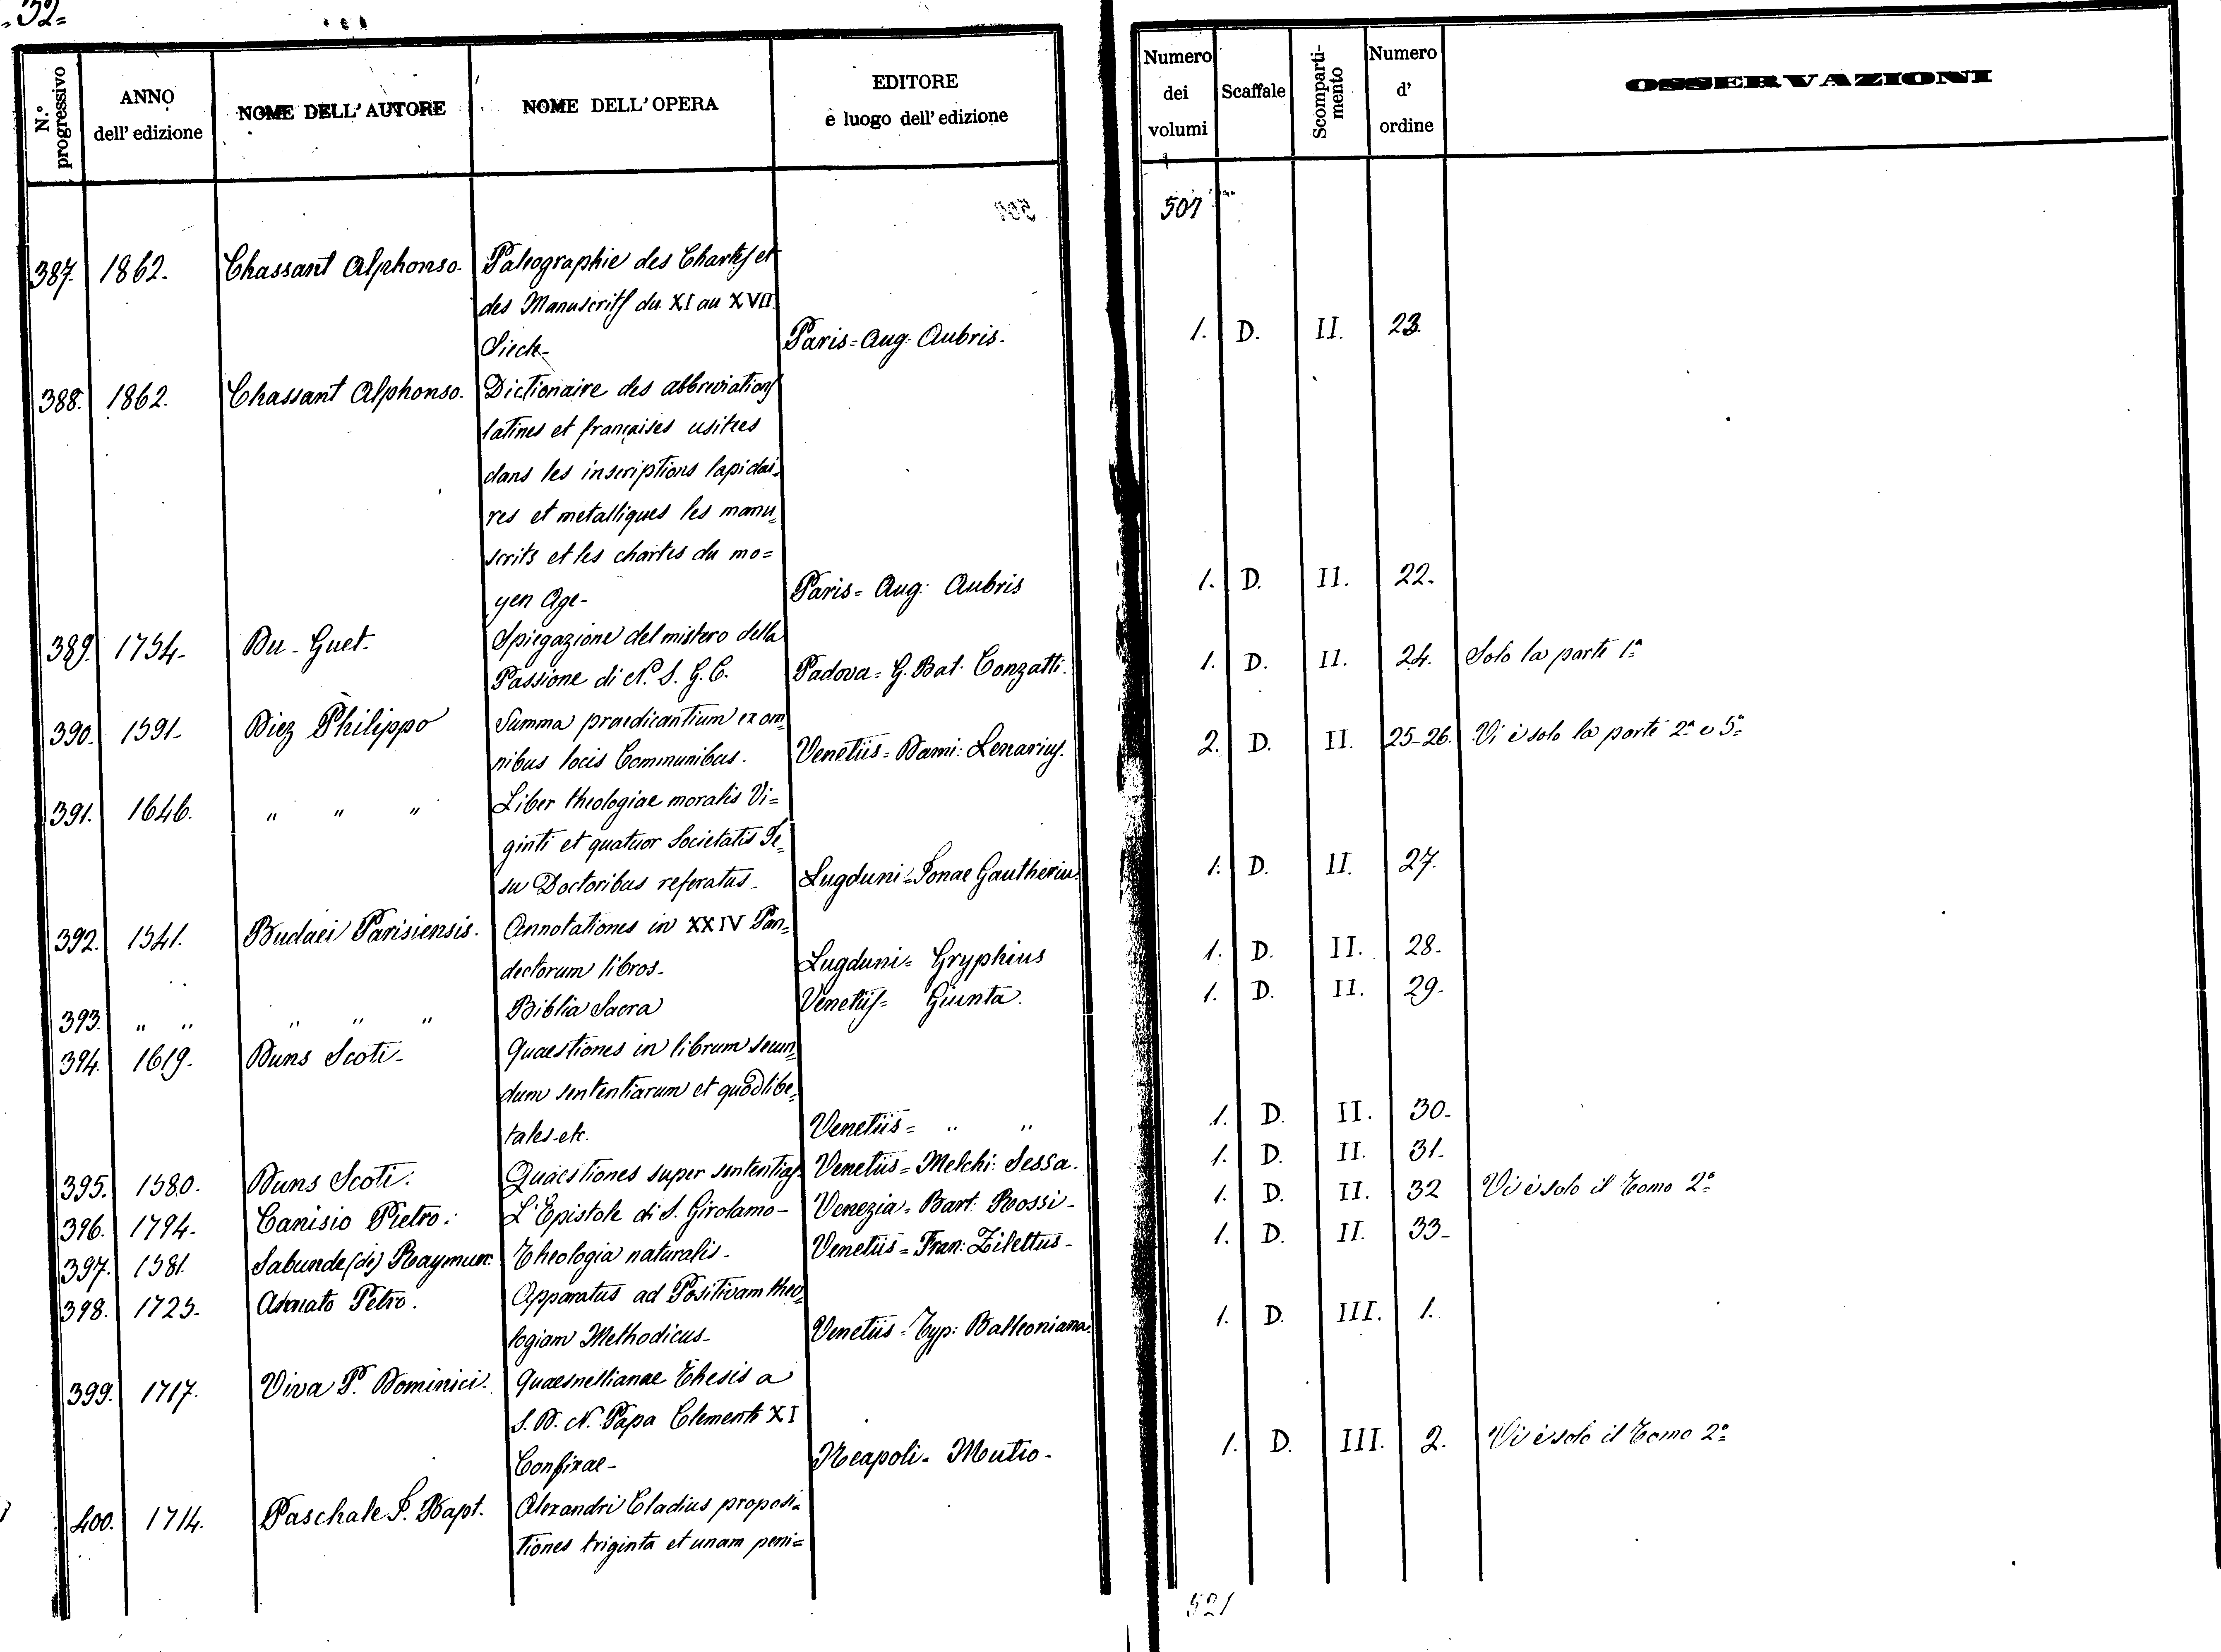 =32=
N.° progressivo
ANNO dell' edizione
NOME DELL' AUTORE
NOME DELL' OPERA
EDITORE e luogo dell' edizione
Numero dei volumi
Scaffale
Scomparti-mento
Numero d' ordine
OSSERVAZIONI
507
387. 1862. Chassant Alphonso. Paleographie des Chartes et
des Manuscrits du XI au XVII.
Siecle- Paris=Aug. Aubris. 1. D. II. 23.
388. 1862. Chassant Alphonso. Dictionaire des abbreviations
latines et françaises usitees
dans les inscriptions lapidai=
res et metalliques les manu=
scrits et les chartes du mo=
yen Age- Paris= Aug. Aubris 1. D. II. 22.
389. 1754. Du-Guet. Spiegazione del mistero della
Passione di N. S. G. C. Padova= G. Bat. Conzatti. 1. D. II. 24. Solo la parte 1ª
390. 1591. Diez Philippo Summa praedicantium ex om
nibus locis Communibus. Venetiis= Dami: Zenarius. 2. D. II. 25-26. Vi è solo la parte 2ª e 5ª
391. 1646. " " " Liber theologiae moralis Vi=
ginti et quatuor Societatis Je=
su Doctoribus referatus- Lugduni= Jonae Gautherin. 1. D. II. 27.
392. 1541. Budaei Parisiensis. Annotationes in XXIV Pan=
dectorum libros- Lugduni= Gryphius 1. D. II. 28.
393. " " " " " Biblia Sacra Venetiis= Giunta. 1. D. II. 29.
394. 1619. Duns Scoti- Quaestiones in librum secun=
dum sententiarum et quodlibe=
tales etc. Venetiis= " " 1. D. II. 30.
395. 1580. Duns Scoti. Quaestiones super sententias. Venetiis= Melchi: Sessa. 1. D. II. 31.
396. 1794. Canisio Pietro. L'Epistole di S. Girolamo- Venezia= Bart: Rossi- 1. D. II. 32 Vi è solo il Tomo 2°
397. 1581. Sabunde (de) Raymun. Theologia naturalis- Venetiis= Fran: Zilettus- 1. D. II. 33-
398. 1725. Annato Petro. Apparatus ad Positivam theo=
logiam Methodicus- Venetiis= Typ: Balleoniana. 1. D. III. 1.
399. 1717. Viva P. Dominici. Quaesnellianae Thesis a
S. D. N. Papa Clemente XI
Confixae- Neapoli= Mutio- 1. D. III. 2. Vi è solo il Tomo 2°
400. 1714. Paschale S. Bapt. Alexandri Cladius proposi=
tiones triginta et unam peni=
521